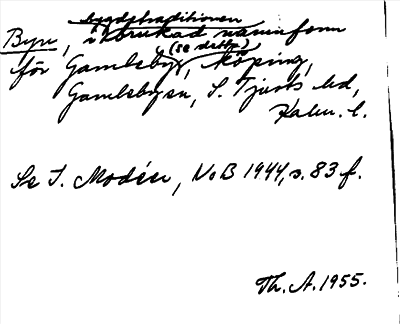 bygdetraditionen
Byn, i obrukad namnform
(se detta)
för Gamlsby, köping,
Gamlebyn, S. Tjusts hd,
Kalm. l.
Se I. Modéer, NoB 1944, s. 83 f.
Th. A. 1955.